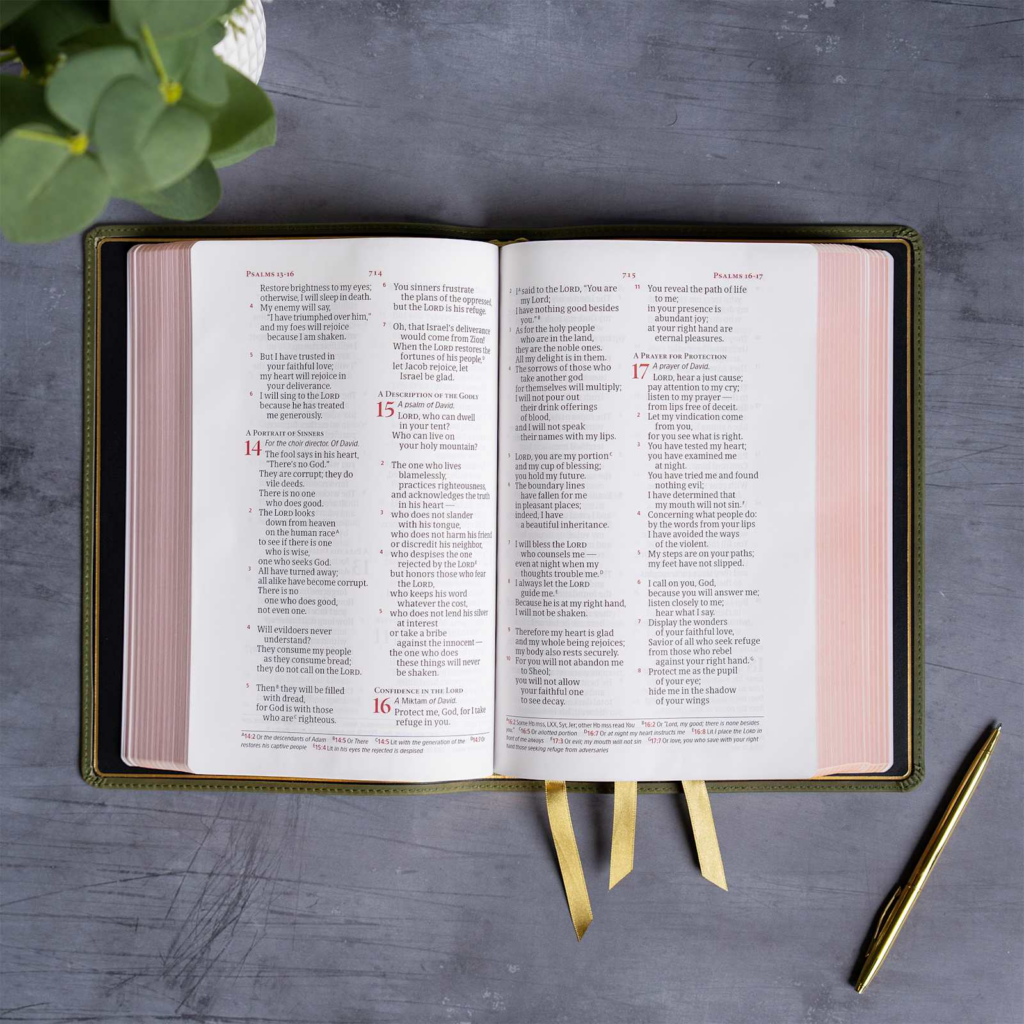 PSALMS 13-16
714
Restore brightness to my eyes;
otherwise, I will sleep in death.
4 My enemy will say,
"I have triumphed over him,"
and my foes will rejoice
because I am shaken.
5 But I have trusted in
your faithful love;
my heart will rejoice in
your deliverance.
6 I will sing to the LORD
because he has treated
me generously.
A PORTRAIT OF SINNERS
14 For the choir director. Of David.
The fool says in his heart,
"There's no God."
They are corrupt; they do
vile deeds.
There is no one
who does good.
2 The LORD looks
down from heaven
on the human raceA
to see if there is one
who is wise,
one who seeks God.
3 All have turned away;
all alike have become corrupt.
There is no
one who does good,
not even one.
4 Will evildoers never
understand?
They consume my people
as they consume bread;
they do not call on the LORD.
5 ThenB they will be filled
with dread,
for God is with those
who areC righteous.
6 You sinners frustrate
the plans of the oppressed,
but the LORD is his refuge.
7 Oh, that Israel's deliverance
would come from Zion!
When the LORD restores the
fortunes of his people,D
let Jacob rejoice, let
Israel be glad.
A DESCRIPTION OF THE GODLY
15 A psalm of David.
LORD, who can dwell
in your tent?
Who can live on
your holy mountain?
2 The one who lives
blamelessly,
practices righteousness,
and acknowledges the truth
in his heart —
3 who does not slander
with his tongue,
who does not harm his friend
or discredit his neighbor,
4 who despises the one
rejected by the LORDE
but honors those who fear
the LORD,
who keeps his word
whatever the cost,
5 who does not lend his silver
at interest
or take a bribe
against the innocent —
the one who does
these things will never
be shaken.
CONFIDENCE IN THE LORD
16 A Miktam of David.
Protect me, God, for I take
refuge in you.
A14:2 Or the descendants of Adam B14:5 Or There C14:5 Lit with the generation of the D14:7 Or
restores his captive people E15:4 Lit in his eyes the rejected is despised
715
PSALMS 16-17
2 I said to the LORD, "You are
my Lord;
I have nothing good besides
you."
3 As for the holy people
who are in the land,
they are the noble ones.
All my delight is in them.
4 The sorrows of those who
take another god
for themselves will multiply;
I will not pour out
their drink offerings
of blood,
and I will not speak
their names with my lips.
5 LORD, you are my portionC
and my cup of blessing;
you hold my future.
6 The boundary lines
have fallen for me
in pleasant places;
indeed, I have
a beautiful inheritance.
7 I will bless the LORD
who counsels me —
even at night when my
thoughts trouble me.D
8 I always let the LORD
guide me.E
Because he is at my right hand,
I will not be shaken.
9 Therefore my heart is glad
and my whole being rejoices;
my body also rests securely.
10 For you will not abandon me
to Sheol;
you will not allow
your faithful one
to see decay.
11 You reveal the path of life
to me;
in your presence is
abundant joy;
at your right hand are
eternal pleasures.
A PRAYER FOR PROTECTION
17 A prayer of David.
LORD, hear a just cause;
pay attention to my cry;
listen to my prayer —
from lips free of deceit.
2 Let my vindication come
from you,
for you see what is right.
3 You have tested my heart;
you have examined me
at night.
You have tried me and found
nothing evil;
I have determined that
my mouth will not sin.F
4 Concerning what people do:
by the words from your lips
I have avoided the ways
of the violent.
5 My steps are on your paths;
my feet have not slipped.
6 I call on you, God,
because you will answer me;
listen closely to me;
hear what I say.
7 Display the wonders
of your faithful love,
Savior of all who seek refuge
from those who rebel
against your right hand.G
8 Protect me as the pupil
of your eye;
hide me in the shadow
of your wings
A16:2 Some Hb mss, LXX, Syr, Jer; other Hb mss read You B16:2 Or "Lord, my good; there is none besides
you." C16:5 Or allotted portion D16:7 Or at night my heart instructs me E16:8 Lit I place the LORD in
front of me always F17:3 Or evil; my mouth will not sin G17:7 Or love, you who save with your right
hand those seeking refuge from adversaries